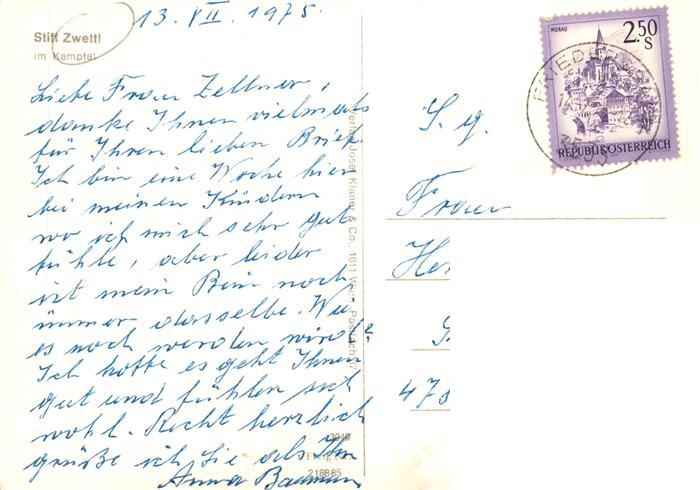 13. VII. 1975.
Stift Zwettl
im Kamptal
Liebe Frau Zellner,
danke Ihnen vielmals
für Ihren lieben Brief.
Ich bin eine Woche hier
bei meinen Kindern
wo ich mich sehr gut
fühle, aber leider
ist mein Bein noch
immer dasselbe. Wie
es noch werden wird?
Ich hoffe es geht Ihnen
gut und fühlen sich
wohl. Recht herzlich
grüße ich Sie als Ihre
Anna
218885
Verlag Josef Klaner & Co., 1011 Wien, Postfach
MURAU
2.50
S
REPUBLIK ÖSTERREICH
S. g.
Frau